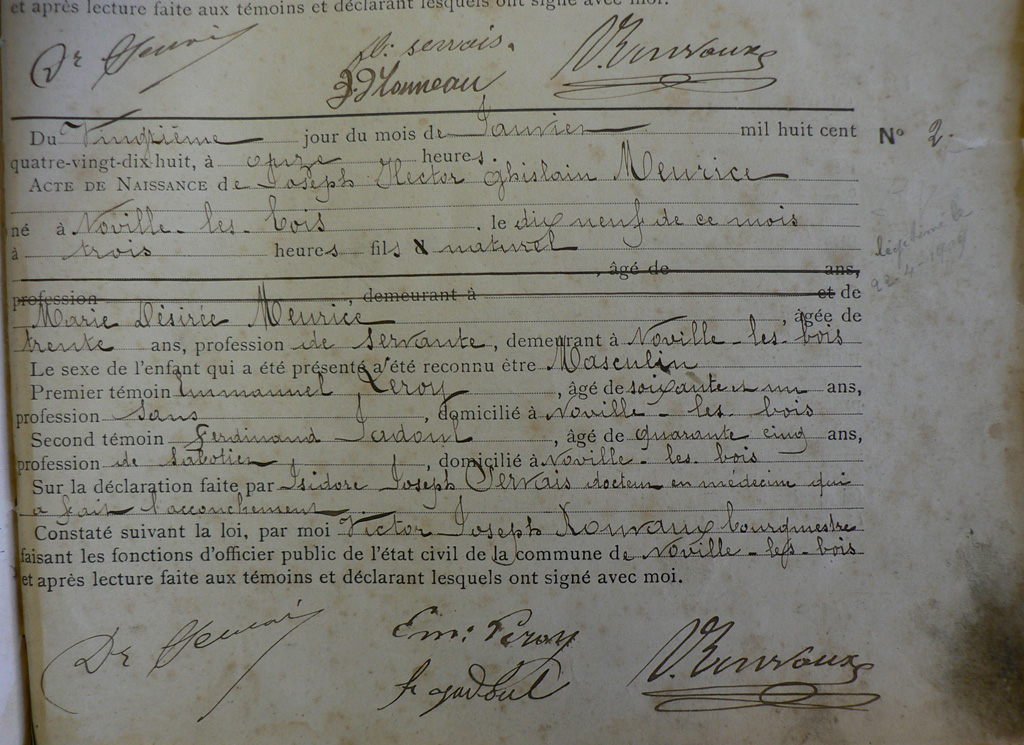 et après lecture faite aux témoins et déclarant lesquels ont signé avec moi.
Dr Servais
servais.
V. Rouvaux
N° 2.
Du Vingtième jour du mois de Janvier mil huit cent
quatre-vingt-dix huit, à onze heures.
ACTE DE NAISSANCE de Joseph Hector Ghislain Meurice
né à Noville-les-bois . le dix neuf de ce mois
à trois heures fils & naturel
légitimé le
22-4-1909
, âgé de ans,
profession , demeurant à et de
Marie Désirée Meurice , âgée de
trente ans, profession de servante, demeurant à Noville-les-bois
Le sexe de l'enfant qui a été présenté a été reconnu être Masculin
Premier témoin Emmanuel Leroy , âgé de soixante et un ans,
profession sans , domicilié à Noville-les-bois
Second témoin Ferdinand Jadoul , âgé de quarante cinq ans,
profession de sabotier , domicilié à Noville-les-bois
Sur la déclaration faite par Isidore Joseph Servais docteur en médecine qui
a fait l'accouchement
Constaté suivant la loi, par moi Victor Joseph Rouvaux bourgmestre
faisant les fonctions d'officier public de l'état civil de la commune de Noville-les-bois
et après lecture faite aux témoins et déclarant lesquels ont signé avec moi.
Dr Servais
Em: Leroy
f jadoul
V. Rouvaux